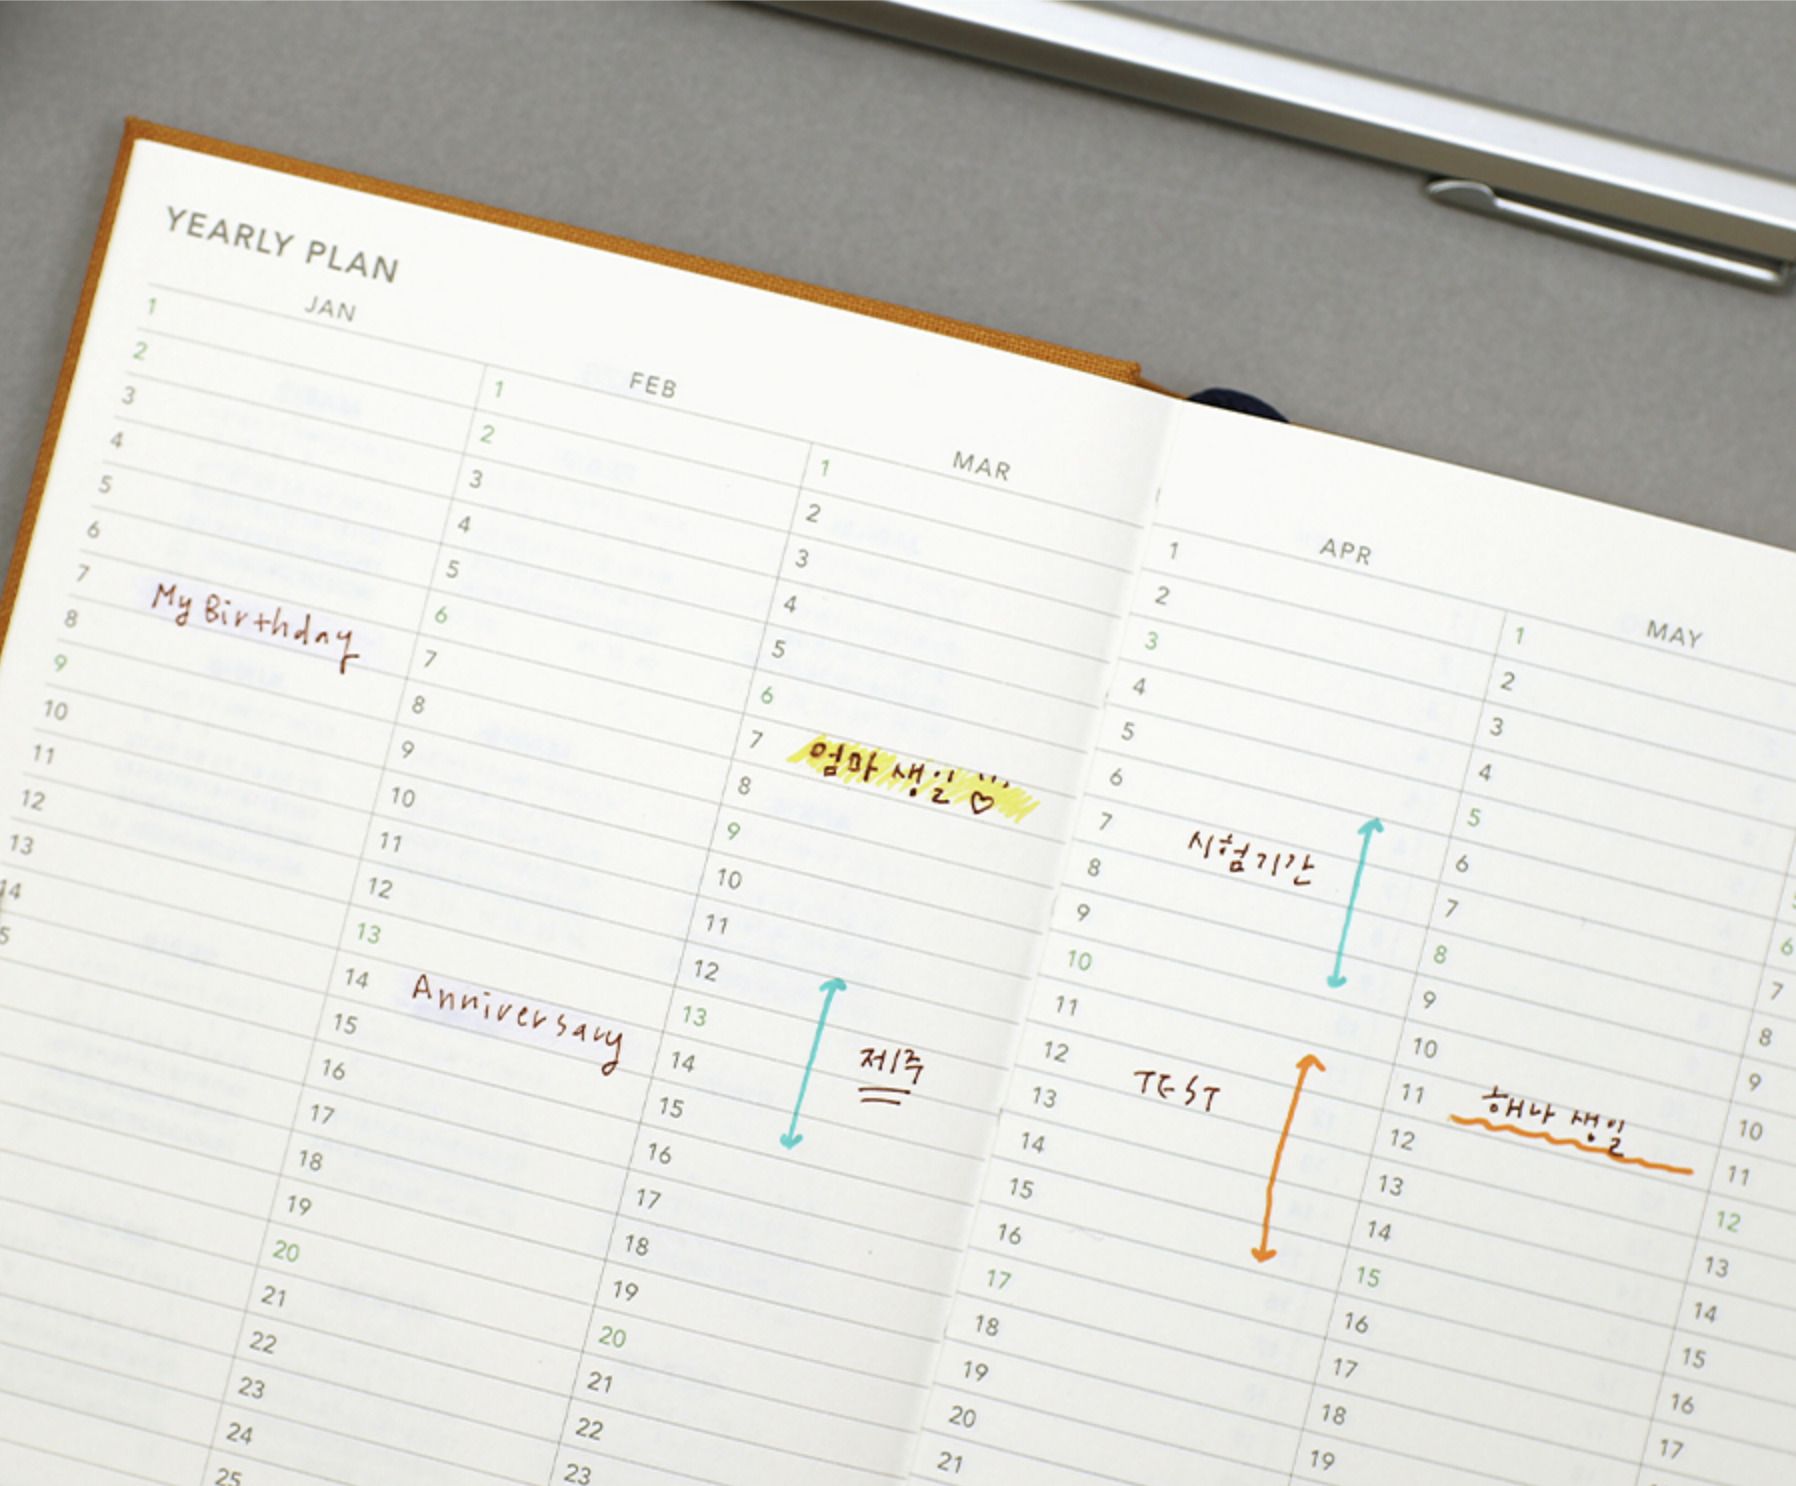 YEARLY PLAN
JAN
1
2
3
4
5
6
7 My Birthday
8
9
10
11
12
13
14
5
FEB
1
2
3
4
5
6
7
8
9
10
11
12
13
14 Anniversary
15
16
17
18
19
20
21
22
23
24
25
MAR
1
2
3
4
5
6
7 엄마 생일 ♡
8
9
10
11
12
13
14 제주
15
16
17
18
19
20
21
22
23
APR
1
2
3
4
5
6
7 시험기간
8
9
10
11
12 TEST
13
14
15
16
17
18
19
20
21
MAY
1
2
3
4
5
6
7
8
9
10
11 해나 생일
12
13
14
15
16
17
18
19
5
6
7
8
9
10
11
12
13
14
15
16
17